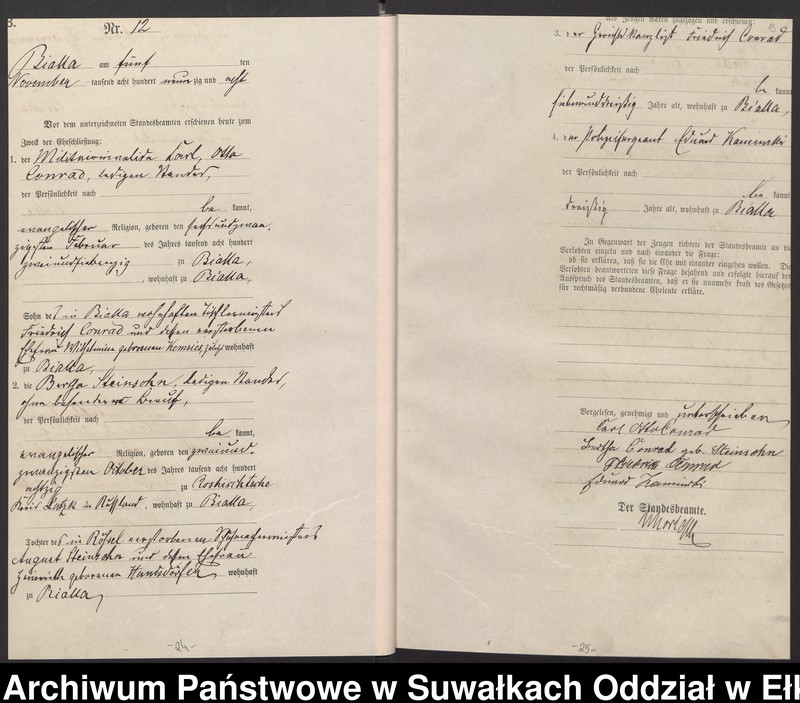 B.
Nr. 12
Bialla am fünf ten
November tausend acht hundert neunzig und acht
Vor dem unterzeichneten Standesbeamten erschienen heute zum
Zweck der Eheschließung:
1. der Militairinvalide Karl, Otto
Conrad, ledigen Standes,
der Persönlichkeit nach
be kannt,
evangelischer Religion, geboren den sechsundzwan-
zigsten Februar des Jahres tausend acht hundert
zweiundsiebenzig zu Bialla,
, wohnhaft zu Bialla,
Sohn des in Bialla wohnhaften Tischlermeisters
Friedrich Conrad und dessen verstorbenen
Ehefrau Wilhelmine geborenen zuletzt wohnhaft
zu Bialla,
2. die Bertha Steinsohn, ledigen Standes,
ohne besonderen Beruf,
der Persönlichkeit nach
be kannt,
evangelischer Religion, geboren den zweiund-
zwanzigsten October des Jahres tausend acht hundert
achtzig zu Roskischtsche
Kreis Lutzk in Rußland, wohnhaft zu Bialla,
Tochter des in Rößel verstorbenen
August Steinsohn und dessen Ehefrau
geborenen wohnhaft
zu Bialla,
-24-
als Zeugen waren zugezogen und erschienen:
3. der Gerichtskanzlist Friedrich Conrad
der Persönlichkeit nach
be kannt
siebenunddreißig Jahre alt, wohnhaft zu Bialla,
4. der Polizeisergeant Eduard Kaminski
der Persönlichkeit nach
be kannt
dreißig Jahre alt, wohnhaft zu Bialla
In Gegenwart der Zeugen richtete der Standesbeamte an die
Verlobten einzeln und nach einander die Frage:
ob sie erklären, daß sie die Ehe mit einander eingehen wollen. Die
Verlobten beantworteten diese Frage bejahend und erfolgte hierauf der
Ausspruch des Standesbeamten, daß er sie nunmehr kraft des Gesetzes
für rechtmäßig verbundene Eheleute erkläre.
Vorgelesen, genehmigt und unterschrieben
Carl Otto Conrad
Bertha Conrad geb. Steinsohn
Friedrich Conrad
Eduard Kaminski
Der Standesbeamte.
-25-
Archiwum Państwowe w Suwałkach Oddział w Ełk